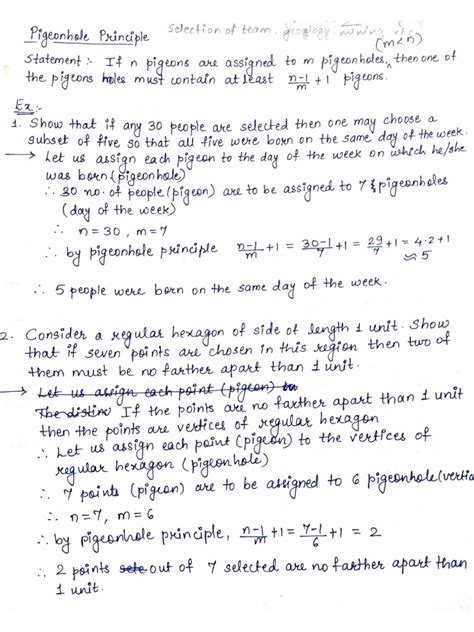 Pigeonhole Principle
Selection of team. geology mining etc.
(m<n)
Statement :- If n pigeons are assigned to m pigeonholes, then one of
the pigeons holes must contain at least n-1/m + 1 pigeons.
Ex:-
1. Show that if any 30 people are selected then one may choose a
subset of five so that all five were born on the same day of the week.
→ Let us assign each pigeon to the day of the week on which he/she
was born (pigeonhole)
∴ 30 no. of people (pigeon) are to be assigned to 7 pigeonholes
(day of the week)
∴ n=30, m=7
∴ by pigeonhole principle n-1/m + 1 = 30-1/7 + 1 = 29/7 + 1 = 4.2+1
≈ 5
∴ 5 people were born on the same day of the week.
2. Consider a regular hexagon of side of length 1 unit. Show
that if seven points are chosen in this region then two of
them must be no farther apart than 1 unit.
→ Let us assign each point (pigeon) to
The distinc If the points are no farther apart than 1 unit
then the points are vertices of regular hexagon
∴ Let us assign each point (pigeon) to the vertices of
regular hexagon (pigeonhole)
∴ 7 points (pigeon) are to be assigned to 6 pigeonhole (vertic
∴ n=7, m=6
∴ by pigeonhole principle, n-1/m + 1 = 7-1/6 + 1 = 2
∴ 2 points out of 7 selected are no farther apart than
1 unit.